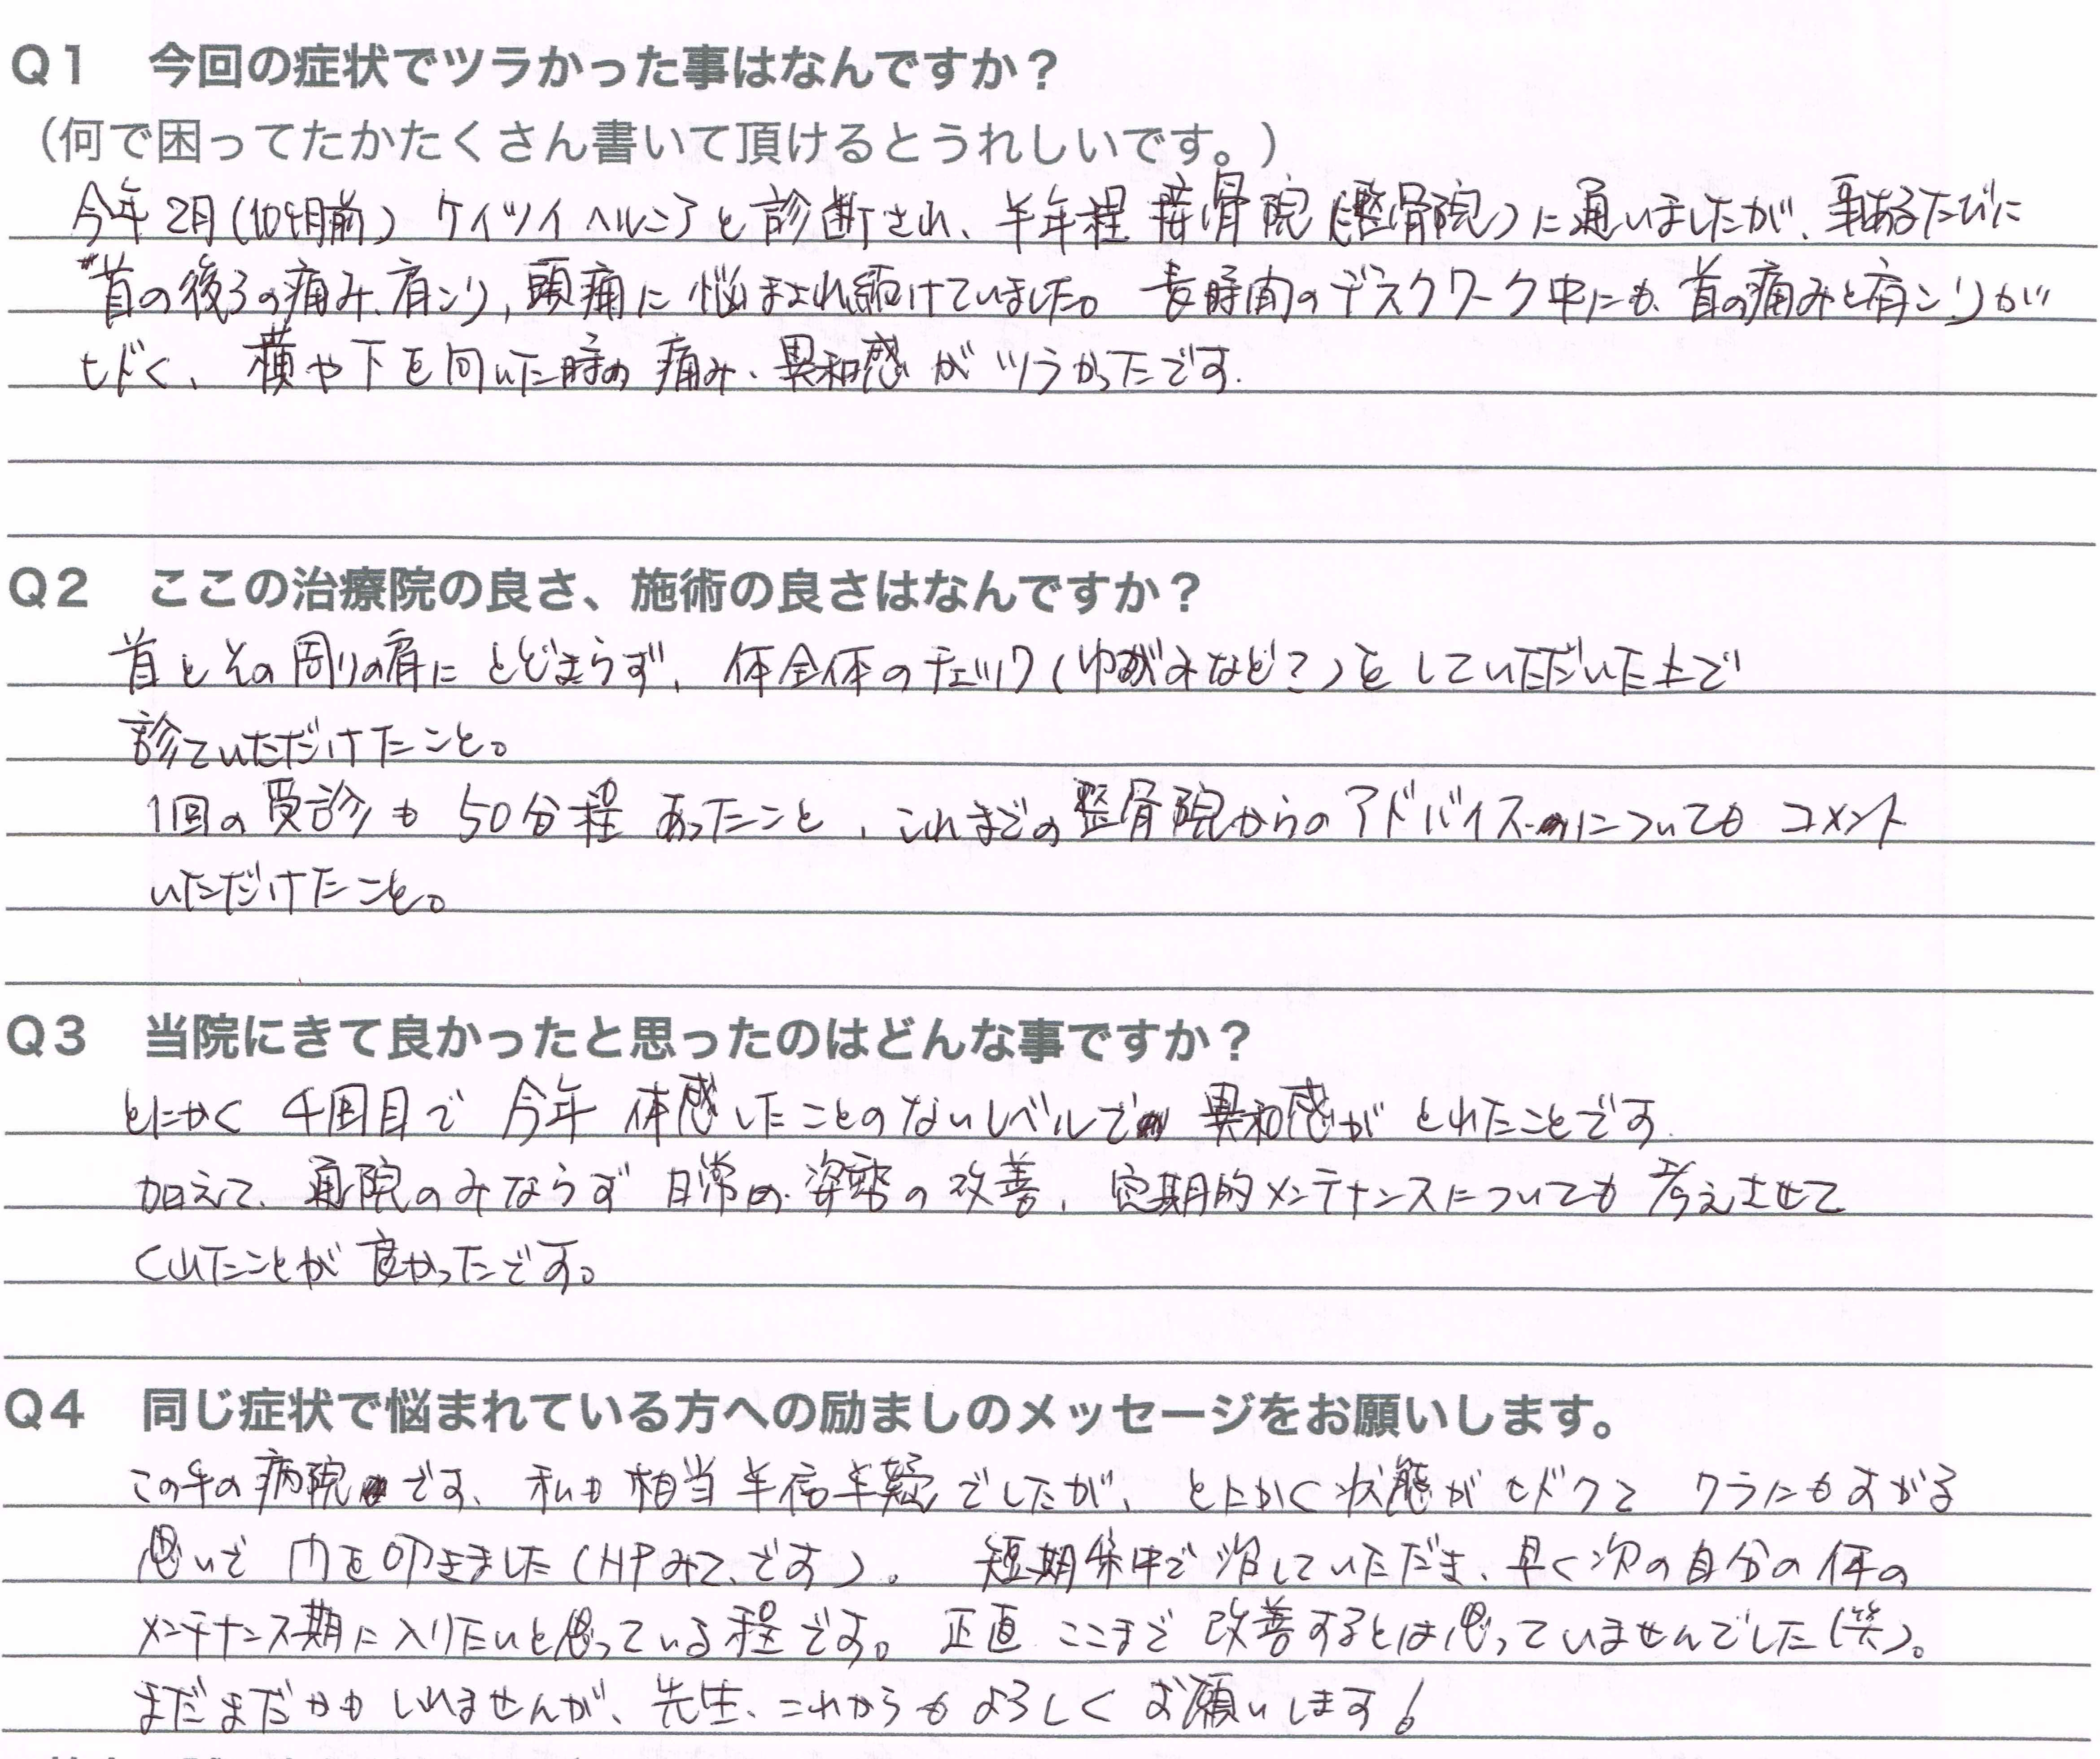 Q1 今回の症状でツラかった事はなんですか？
（何で困ってたかたくさん書いて頂けるとうれしいです。）
今年2月(10ヶ月前) ケイツイヘルニアと診断され、半年程 接骨院(整骨院)に通いましたが、事あるたびに
首の後ろの痛み、肩コリ, 頭痛に悩まされ続けていました。長時間のデスクワーク中にも首の痛みと肩コリが
ヒドく、横や下を向いた時の痛み、異和感がツラかったです.
Q2 ここの治療院の良さ、施術の良さはなんですか？
首とその周りの肩にとどまらず、体全体のチェック(ゆがみなど?)をしていただいた上で
診ていただけたこと。
1回の受診も50分程あったこと、これまでの整骨院からのアドバイスについてもコメント
いただけたこと。
Q3 当院にきて良かったと思ったのはどんな事ですか？
とにかく4回目で今年体感したことのないレベルで異和感がとれたことです.
加えて、通院のみならず日常の姿勢の改善、定期的メンテナンスについても考えさせて
くれたことが良かったです。
Q4 同じ症状で悩まれている方への励ましのメッセージをお願いします。
この手の病院です、私も相当半信半疑でしたが、とにかく状態がヒドクて ワラにもすがる
思いで門を叩きました(HPみて、です)。 短期集中で治していただき、早く次の自分の体の
メンテナンス期に入りたいと思っている程です。正直ここまで改善するとは思っていませんでした(笑)。
まだまだかもしれませんが、先生、これからもよろしくお願いします!